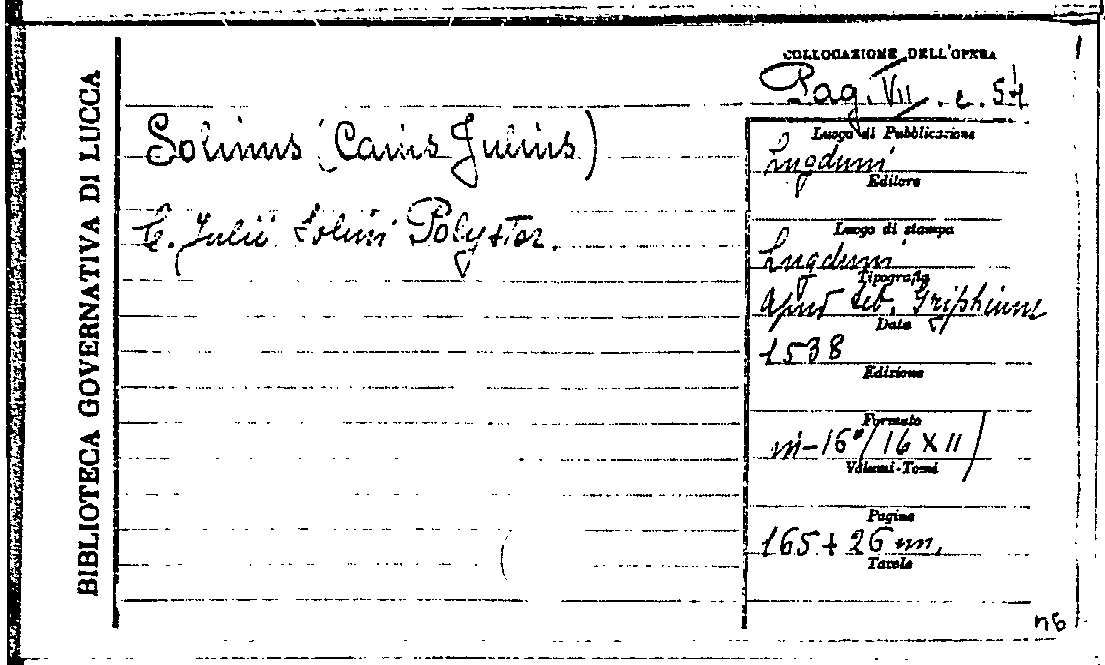 BIBLIOTECA GOVERNATIVA DI LUCCA
Solinus (Caius Julius)
C. Julii Solini Polystor.
COLLOCAZIONE DELL'OPERA
Pag. VII. c. 54
Luogo di Pubblicazione
Lugduni
Editore
Luogo di stampa
Lugduni
Tipografia
Apud Seb. Griphium
Data
1538
Edizione
Formato
in-16° / 16 X 11 /
Volumi-Tomi
Pagine
165 + 26 nn.
Tavole